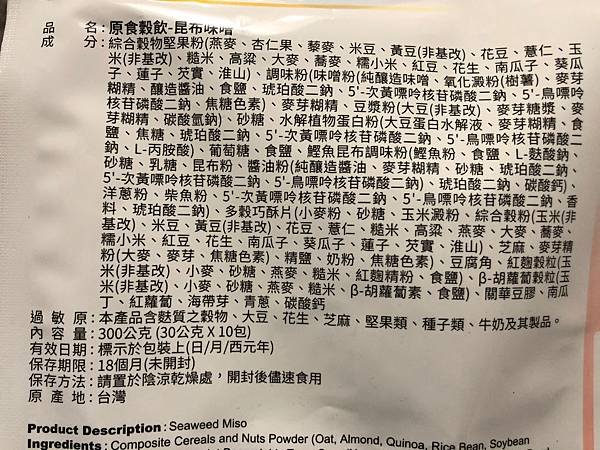 品名：原食穀飲-昆布味噌
成分：綜合穀物堅果粉(燕麥、杏仁果、藜麥、米豆、黃豆(非基改)、花豆、薏仁、玉
米(非基改)、糙米、高粱、大麥、蕎麥、糯小米、紅豆、花生、南瓜子、葵瓜
子、蓮子、芡實、淮山)、調味粉(味噌粉(純釀造味噌、氧化澱粉(樹薯)、麥芽
糊精、釀造醬油、食鹽、琥珀酸二鈉、5'-次黃嘌呤核苷磷酸二鈉、5'-鳥嘌呤
核苷磷酸二鈉、焦糖色素)、麥芽糊精、豆漿粉(大豆(非基改)、麥芽糖漿、麥
芽糊精、碳酸氫鈉)、砂糖、水解植物蛋白粉(大豆蛋白水解液、麥芽糊精、食
鹽、焦糖、琥珀酸二鈉、5'-次黃嘌呤核苷磷酸二鈉、5'-鳥嘌呤核苷磷酸二
鈉、L-丙胺酸)、葡萄糖、食鹽、鰹魚昆布調味粉(鰹魚粉、食鹽、L-麩酸鈉、
砂糖、乳糖、昆布粉、醬油粉(純釀造醬油、麥芽糊精、砂糖、琥珀酸二鈉、
5'-次黃嘌呤核苷磷酸二鈉、5'-鳥嘌呤核苷磷酸二鈉)、琥珀酸二鈉、碳酸鈣)、
洋蔥粉、柴魚粉、5'-次黃嘌呤核苷磷酸二鈉、5'-鳥嘌呤核苷磷酸二鈉、香
料、琥珀酸二鈉)、多穀巧酥片(小麥粉、砂糖、玉米澱粉、綜合穀粉(玉米(非
基改)、米豆、黃豆(非基改)、花豆、薏仁、糙米、高粱、燕麥、大麥、蕎麥、
糯小米、紅豆、花生、南瓜子、葵瓜子、蓮子、芡實、淮山)、芝麻、麥芽精
粉(大麥、麥芽、焦糖色素)、精鹽、奶粉、焦糖色素)、豆腐角、紅麴穀粒(玉
米(非基改)、小麥、砂糖、燕麥、糙米、紅麴精粉、食鹽)、β-胡蘿蔔穀粒(玉
米(非基改)、小麥、砂糖、燕麥、糙米、β-胡蘿蔔素、食鹽)、關華豆膠、南瓜
丁、紅蘿蔔、海帶芽、青蔥、碳酸鈣
過敏原：本產品含麩質之穀物、大豆、花生、芝麻、堅果類、種子類、牛奶及其製品。
內容量：300公克 (30公克 X 10包)
有效日期：標示於包裝上(日/月/西元年)
保存期限：18個月(未開封)
保存方法：請置於陰涼乾燥處，開封後儘速食用
原產地：台灣
Product Description : Seaweed Miso
Ingredients : Composite Cereals and Nuts Powder (Oat, Almond, Quinoa, Rice Bean, Soybean